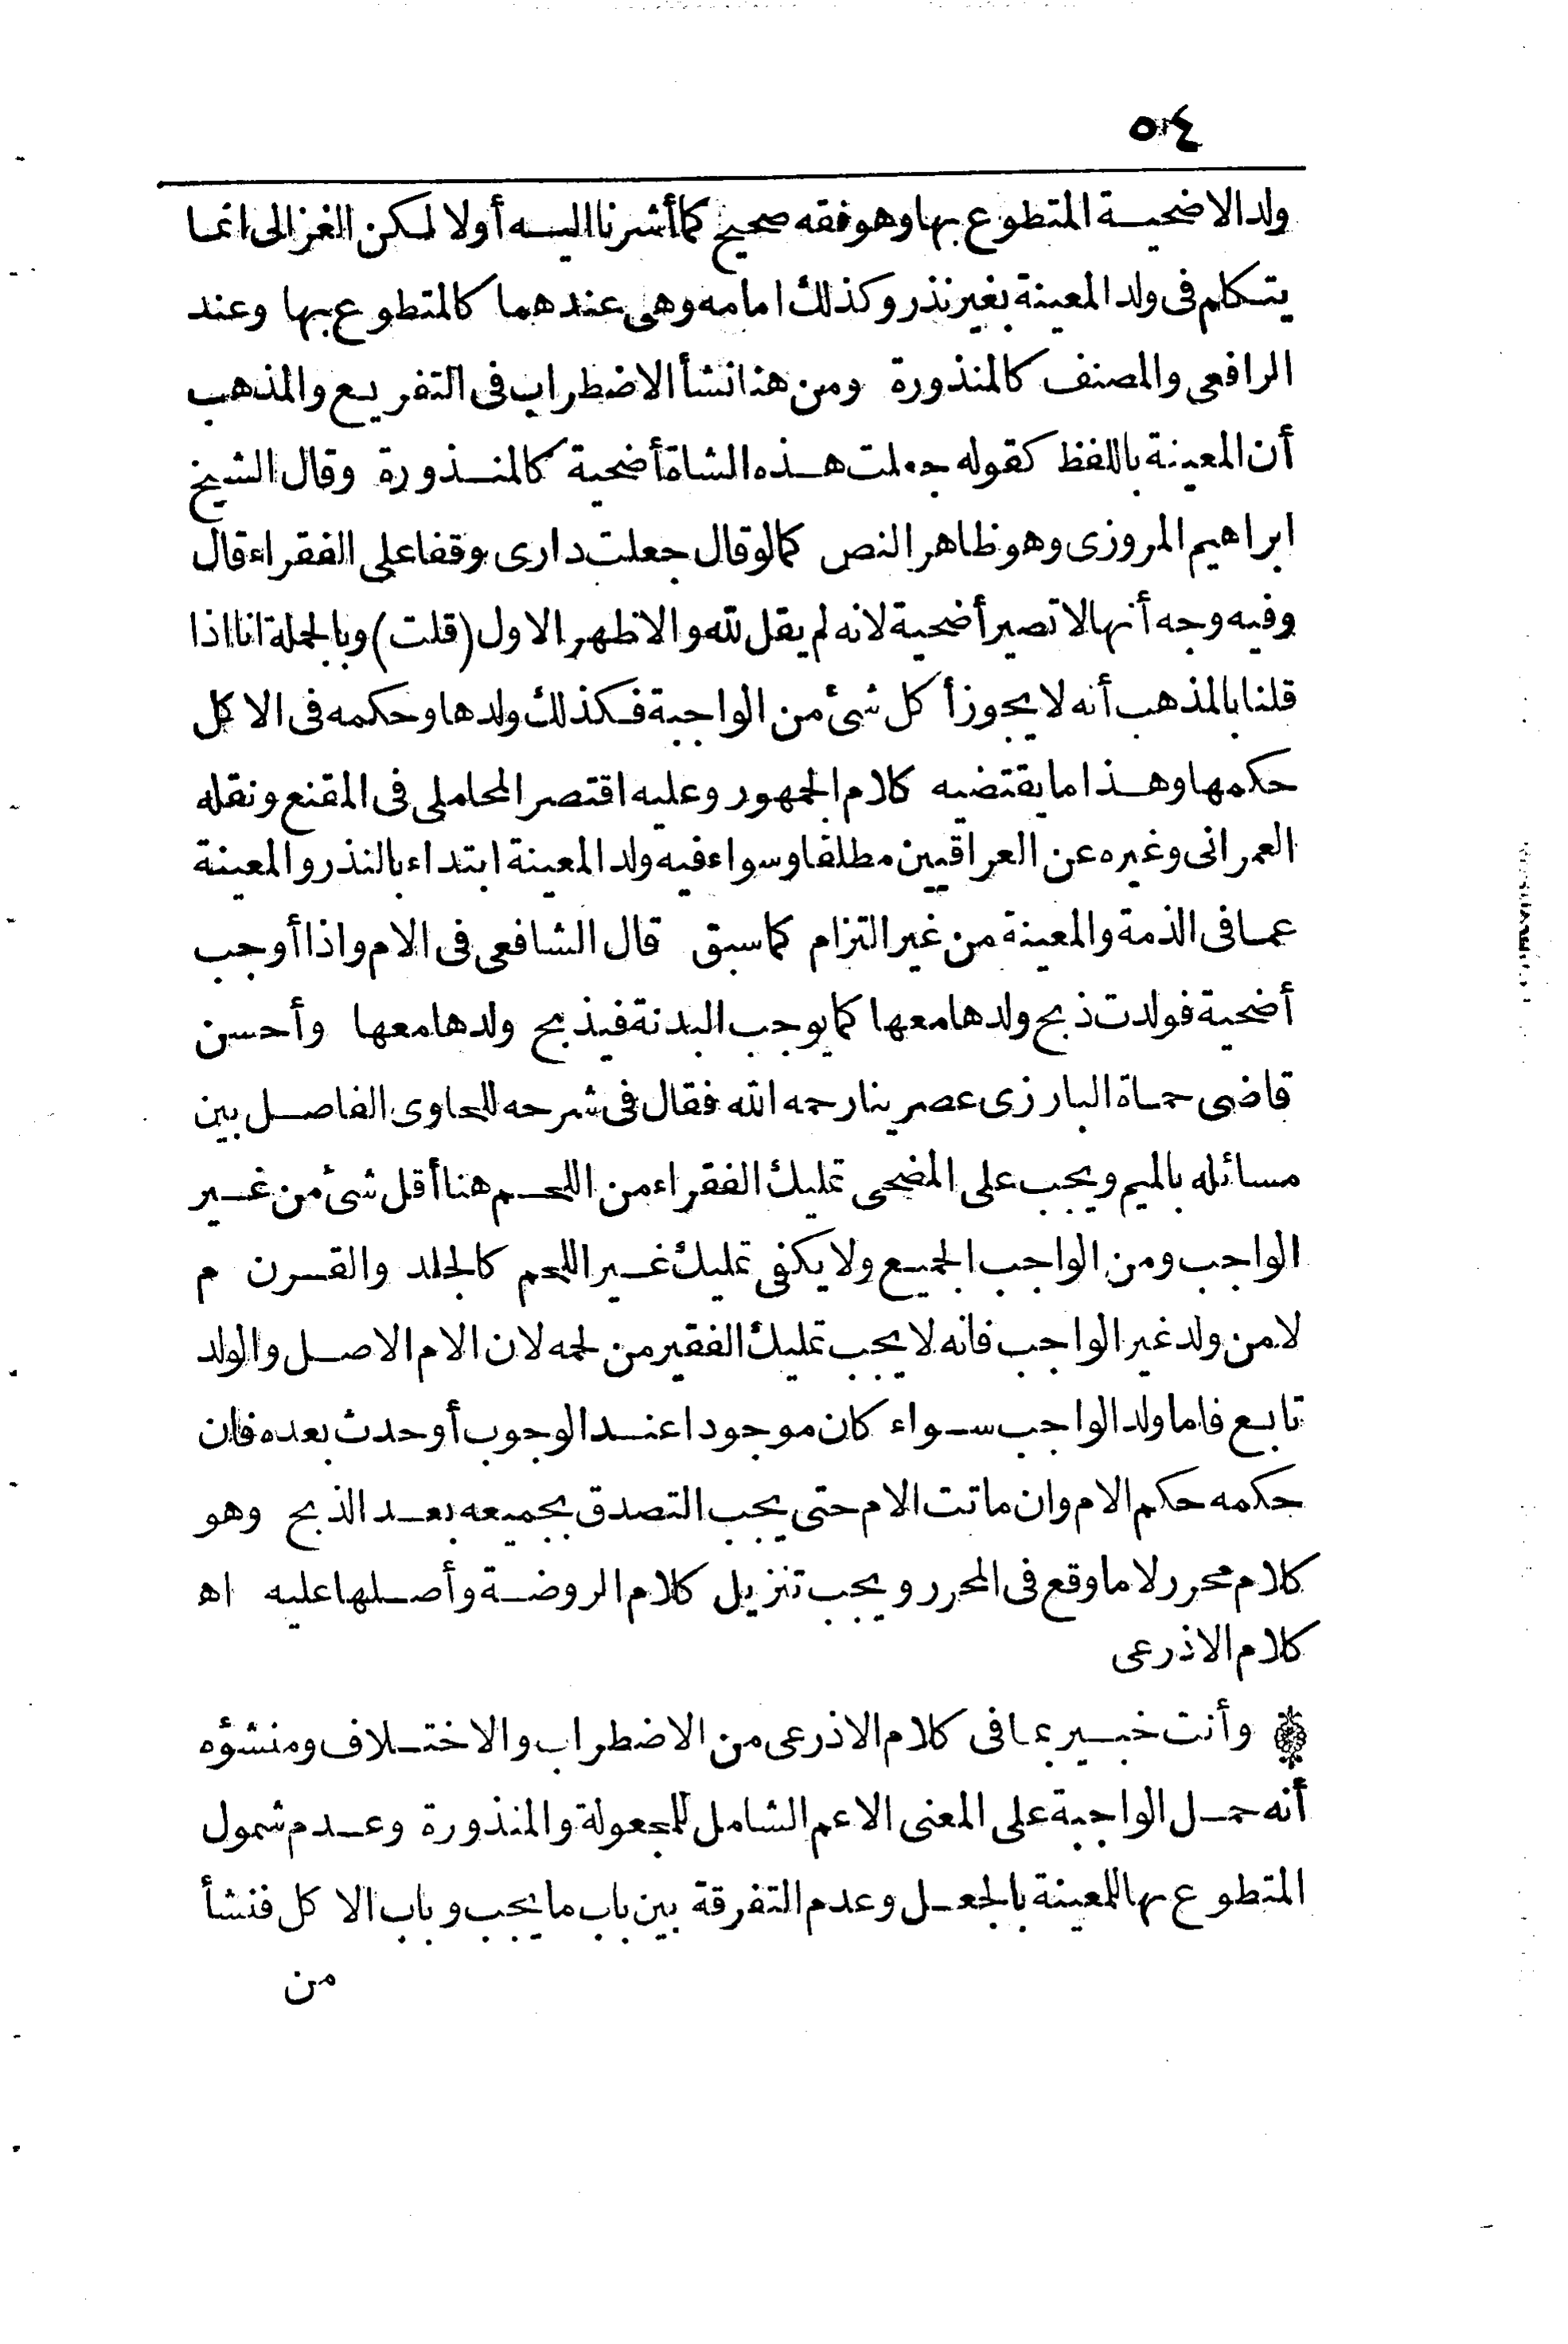 ٥٠٤
ولد الاضحية المتطوع بها وهو فقه صحيح كما أشرنا اليه أولا لكن الغزالى انما
يتكلم فى ولد المعينة بغير نذر وكذلك امامه وهى عندهما كالمتطوع بها وعند
الرافعى والمصنف كالمنذورة ومن هنا نشأ الاضطراب فى التفريع والمذهب
أن المعينة باللفظ كقوله جعلت هذه الشاة أضحية كالمنذورة وقال الشيخ
ابراهيم المروزى وهو ظاهر النص كما لو قال جعلت دارى وقفا على الفقراء قال
وفيه وجه أنها لا تصير أضحية لانه لم يقل لله والاظهر الاول (قلت) وبالجملة انا اذا
قلنا بالمذهب أنه لا يجوز أكل شئ من الواجبة فكذلك ولدها وحكمه فى الاكل
حكمها وهذا ما يقتضيه كلام الجمهور وعليه اقتصر المحاملى فى المقنع ونقله
العمرانى وغيره عن العراقيين مطلقا وسواء فيه ولد المعينة ابتداء بالنذر والمعينة
عما فى الذمة والمعينة من غير التزام كما سبق قال الشافعى فى الام واذا أوجب
أضحية فولدت ذبح ولدها معها كما يوجب البدنة فيذبح ولدها معها وأحسن
قاضى حماة البارزى عصرينا رحمه الله فقال فى شرحه للحاوى الفاصل بين
مسائله بالميم ويجب على المضحى تمليك الفقراء من اللحم هنا أقل شئ من غير
الواجب ومن الواجب الجميع ولا يكفى تمليك غير اللحم كالجلد والقرن م
لا من ولد غير الواجب فانه لا يجب تمليك الفقير من لحمه لان الام الاصل والولد
تابع فاما ولد الواجب سواء كان موجودا عند الوجوب أو حدث بعده فان
حكمه حكم الام وان ماتت الام حتى يجب التصدق بجميعه بعد الذبح وهو
كلام محرر لا ما وقع فى المحرر ويجب تنزيل كلام الروضة وأصلها عليه اه
كلام الاذرعى
وأنت خبير بما فى كلام الاذرعى من الاضطراب والاختلاف ومنشؤه
أنه حمل الواجبة على المعنى الاعم الشامل للمجعولة والمنذورة وعدم شمول
المتطوع بها للمعينة بالجعل وعدم التفرقة بين باب ما يجب وباب الاكل فنشأ
من